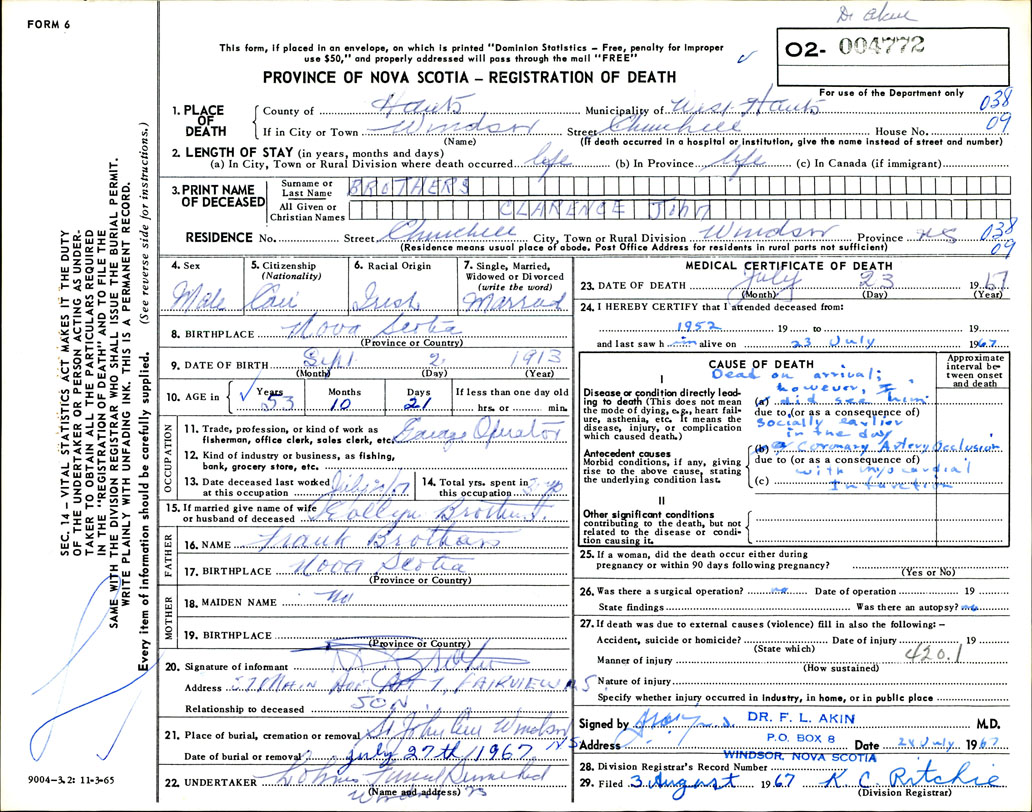 Dr Akin
FORM 6
This form, if placed in an envelope, on which is printed "Dominion Statistics – Free, penalty for improper
use $50," and properly addressed will pass through the mail "FREE"
O2- 004772
PROVINCE OF NOVA SCOTIA – REGISTRATION OF DEATH
For use of the Department only
1. PLACE OF DEATH
County of Hants Municipality of West Hants 038
If in City or Town Windsor Street Churchill House No. 09
(Name) (If death occurred in a hospital or institution, give the name instead of street and number)
2. LENGTH OF STAY (in years, months and days)
(a) In City, Town or Rural Division where death occurred life (b) In Province life (c) In Canada (if immigrant)
3. PRINT NAME OF DECEASED
Surname or Last Name BROTHERS
All Given or Christian Names CLARENCE John
RESIDENCE No. Street Churchill City, Town or Rural Division Windsor Province NS 038
(Residence means usual place of abode. Post Office Address for residents in rural parts not sufficient) 09
SEC. 14 – VITAL STATISTICS ACT MAKES IT THE DUTY
OF THE UNDERTAKER OR PERSON ACTING AS UNDER-
TAKER TO OBTAIN ALL THE PARTICULARS REQUIRED
IN THE "REGISTRATION OF DEATH" AND TO FILE THE
SAME WITH THE DIVISION REGISTRAR WHO SHALL ISSUE THE BURIAL PERMIT.
WRITE PLAINLY WITH UNFADING INK. THIS IS A PERMANENT RECORD.
Every item of information should be carefully supplied. (See reverse side for instructions.)
4. Sex Male
5. Citizenship (Nationality) Can
6. Racial Origin Irish
7. Single, Married, Widowed or Divorced (write the word) Married
8. BIRTHPLACE Nova Scotia
(Province or Country)
9. DATE OF BIRTH Sept 2 1913
(Month) (Day) (Year)
10. AGE in Years 53 Months 10 Days 21 If less than one day old hrs. or min.
OCCUPATION
11. Trade, profession, or kind of work as
fisherman, office clerk, sales clerk, etc. Garage Operator
12. Kind of industry or business, as fishing,
bank, grocery store, etc.
13. Date deceased last worked
at this occupation
14. Total yrs. spent in
this occupation
15. If married give name of wife
or husband of deceased Brothers
FATHER
16. NAME Frank Brothers
17. BIRTHPLACE Nova Scotia
(Province or Country)
MOTHER
18. MAIDEN NAME
19. BIRTHPLACE
(Province or Country)
20. Signature of informant
Address 57 MAIN Ave. Apt 7, FAIRVIEW N.S.
Relationship to deceased SON
21. Place of burial, cremation or removal St John Windsor NS
Date of burial or removal July 27th, 1967
22. UNDERTAKER Funeral
(Name and address) Windsor NS
9004-3.2: 11-3-65
MEDICAL CERTIFICATE OF DEATH
23. DATE OF DEATH July 23 1967
(Month) (Day) (Year)
24. I HEREBY CERTIFY that I attended deceased from:
1952 19 to 19
and last saw h im alive on 23 July 1967
CAUSE OF DEATH
Approximate interval between onset and death
I
Dead on arrival;
however, I
Disease or condition directly leading to death (This does not mean the mode of dying, e.g., heart failure, asthenia, etc. It means the disease, injury, or complication which caused death.)
(a) did see him
due to (or as a consequence of)
socially earlier
in the day
Antecedent causes
Morbid conditions, if any, giving rise to the above cause, stating the underlying condition last.
(b) Coronary Artery Occlusion
due to (or as a consequence of)
with myocardial
(c) Infarction
II
Other significant conditions
contributing to the death, but not related to the disease or condition causing it.
25. If a woman, did the death occur either during
pregnancy or within 90 days following pregnancy?
(Yes or No)
26. Was there a surgical operation? no Date of operation 19
State findings Was there an autopsy? no
27. If death was due to external causes (violence) fill in also the following: –
Accident, suicide or homicide? Date of injury 19
(State which) 420.1
Manner of injury
(How sustained)
Nature of injury
Specify whether injury occurred in industry, in home, or in public place
Signed by DR. F. L. AKIN M.D.
Address P.O. BOX 8 Date 24 July 1967
WINDSOR, NOVA SCOTIA
28. Division Registrar's Record Number
29. Filed 3 August 1967 K. C. Ritchie
(Division Registrar)